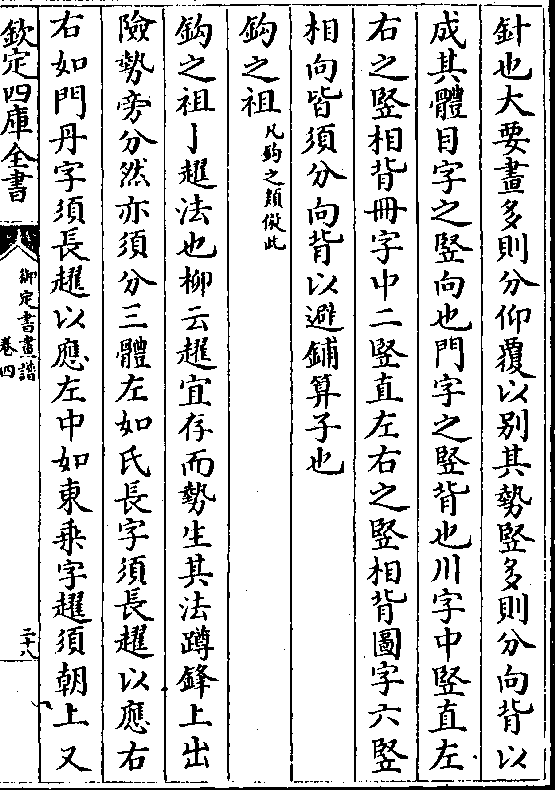 針也大要畫多則分仰覆以别其勢竪多則分向背以
成其體目字之竪向也門字之竪背也川字中竪直左
右之竪相背冊字中二竪直左右之竪相背圖字六竪
相向皆須分向背以避鋪算子也
鈎之祖凡鈎之類倣此
鈎之祖亅趯法也柳云趯宜存而勢生其法蹲鋒上出
險勢旁分然亦須分三體左如氏長字須長趯以應右
右如門丹字須長趯以應左中如東乗字趯須朝上又
欽定四庫全書
御定書畫譜
卷四
三十八